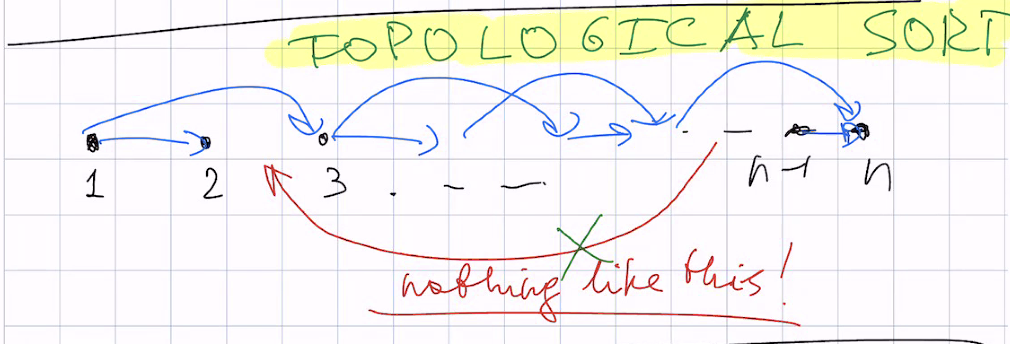 TOPOLOGICAL SORT
1 2 3 . - - n-1 n
nothing like this!